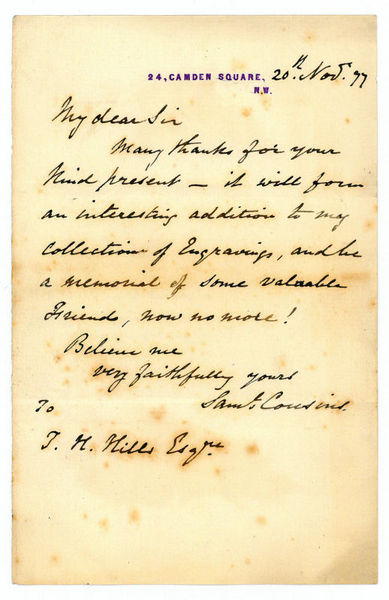 24, CAMDEN SQUARE, 20th Novr. 77
N.W.
My dear Sir
Many thanks for your
kind present — it will form
an interesting addition to my
collection of Engravings, and be
a memorial of some valuable
Friends, now no more!
Believe me
very faithfully yours
Saml. Cousins.
To
T. H. Hills Esqre